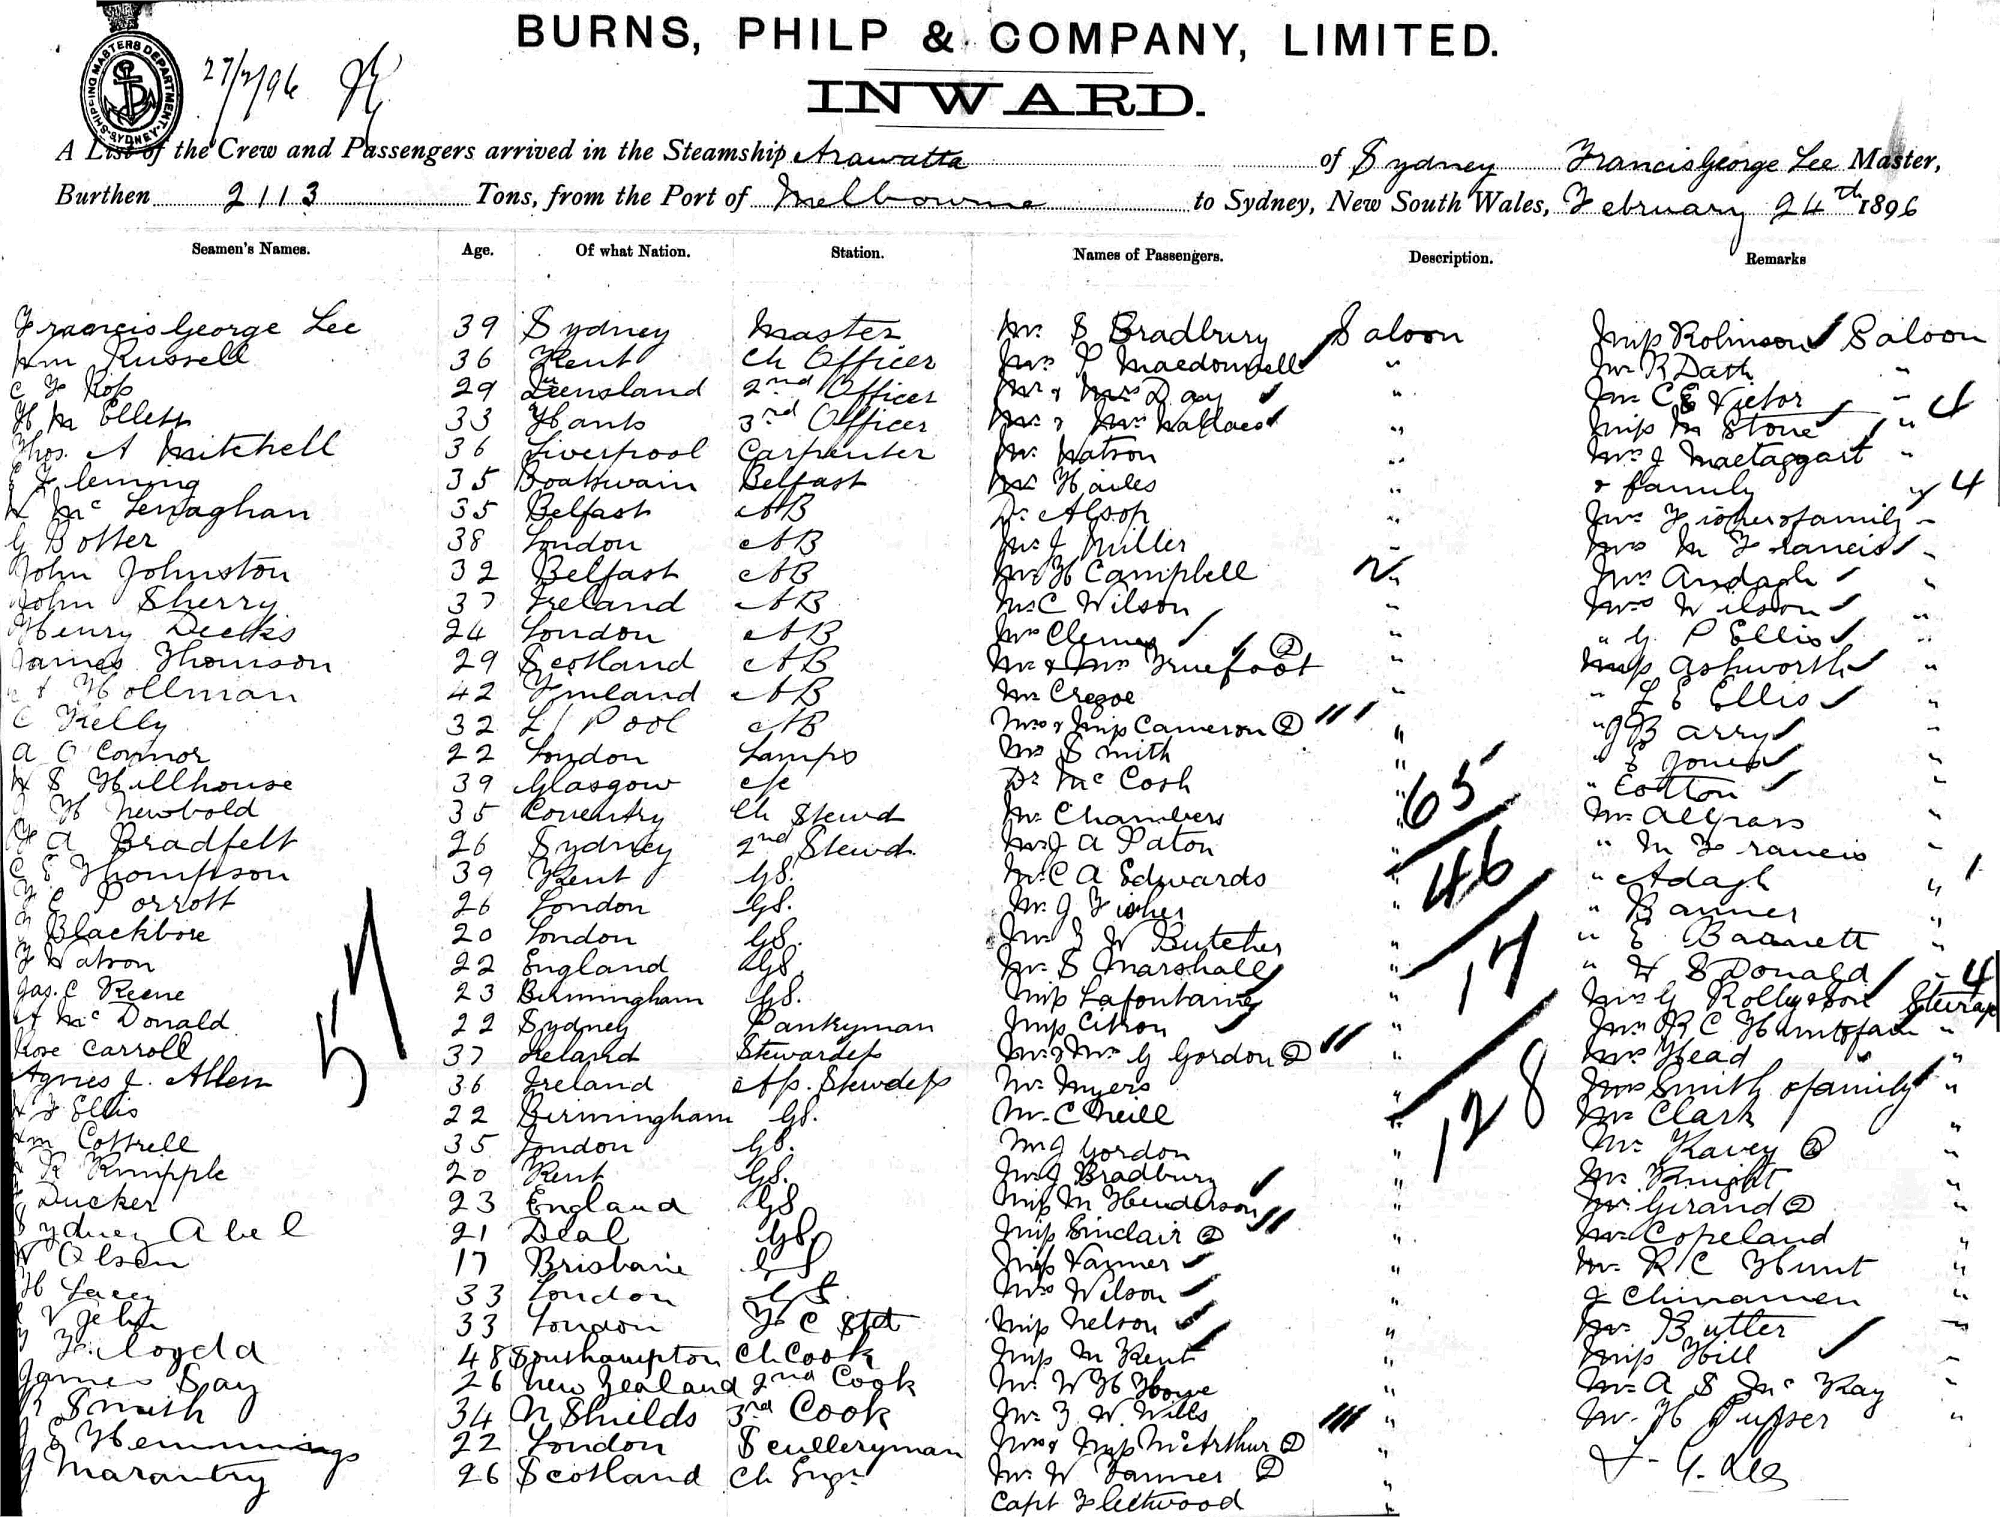 BURNS, PHILP & COMPANY, LIMITED.
INWARD.
SHIPPING MASTERS DEPARTMENT SYDNEY
27/2/96
A List of the Crew and Passengers arrived in the Steamship Arawatta of Sydney Francis George Lee Master,
Burthen 2113 Tons, from the Port of Melbourne to Sydney, New South Wales, February 24th 1896
Seamen's Names. Age. Of what Nation. Station. Names of Passengers. Description. Remarks
Francis George Lee 39 Sydney Master Mr. S Bradbury Saloon Miss Robinson Saloon
Wm Russell 36 Kent Ch Officer Mrs Macdonnell " Mr R Dath "
29 Queensland 2nd Officer Mr & Mrs Day " Mr C E Victor "
H M Ellett 33 Hants 3rd Officer Mr & Mrs Wallace " Miss M Stone " 4
Thos. A Mitchell 36 Liverpool Carpenter Mr Watson " Mrs J Mactaggart "
Fleming 35 Boatswain Belfast Mr Hailes " & family " 4
Mc Lenaghan 35 Belfast AB Dr Alsop " Mrs Fisher & family "
G Botter 38 London AB Mr J Miller " Mrs M Francis "
John Johnston 32 Belfast AB Mr H Campbell " Mrs "
John Sherry 37 Ireland AB Mr C Wilson " Mrs Wilson "
Henry Deeks 24 London AB Mrs " " G P Ellis "
James Thomson 29 Scotland AB Mr & Mrs Truefoot 2 " Miss Ashworth "
Hollman 42 Finland AB Mr Cregoe " " L E Ellis "
C Kelly 32 L/Pool AB Mrs & Miss Cameron 2 " " J Barry "
A O Connor 22 London Lamps Mr Smith " " E Jones "
W S Hillhouse 39 Glasgow Dr Mc Cosh " " Cotton "
H Newbold 35 Coventry Ch Stewd Mr Chambers " 65 Mr Allgrass "
A Bradfelt 26 Sydney 2nd Stewd. Mr J A Paton " " M Francis "
C E Thompson 39 Kent GS. Mr C A Edwards " 46 " Adagh "
Porrott 26 London GS. Mr J Fisher " " Banner "
Blackbore 20 London GS. Mr W Butcher " " E Barnett "
Watson 22 England GS. Mr S Marshall " 17 " W S Donald 4
Jas. C Keene 23 Birmingham GS. Miss Lafontaine " Mrs G Rollgson
Mc Donald 22 Sydney Pantryman Miss Citron " Mr R C "
Rose Carroll 37 Ireland Stewardess Mr & Mrs G Gordon 2 " Mrs Head "
Agnes J. Allen 36 Ireland Ass. Stewdess Mr Myers " Mrs Smith & family "
Ellis 22 Birmingham GS. Mr C Neill " 128 Mr Clark "
Wm Cottrell 35 London GS. Mr J Gordon " Mr Kavey 2 "
R Knipple 20 Kent GS. Mrs J Bradbury " Mr Knight "
Ducker 23 England GS Miss M Henderson " Mr. Girand 2 "
Sydney Abel 21 Deal GS Miss Sinclair 2 " Mr Copeland "
W Olsen 17 Brisbane GS Miss Farmer " Mr. R C Hunt "
H Lacey 33 London GS Mrs Wilson " 2 Chinamen "
33 London Miss Nelson " Mr. Butler "
48 Southampton Ch. Cook Miss M Kent " Miss Hill "
James Day 26 New Zealand 2nd Cook Mr. W H " Mr A S Mc Kay "
Smith 34 N Shields 3rd Cook Mr. W. Wills " Mr. H "
Hemmings 22 London Sculleryman Mrs & Miss McArthur 2 "
Marantry 26 Scotland Ch Engr Mr. W Farmer 2 "
Capt Fleetwood "
57
F. G. Lee